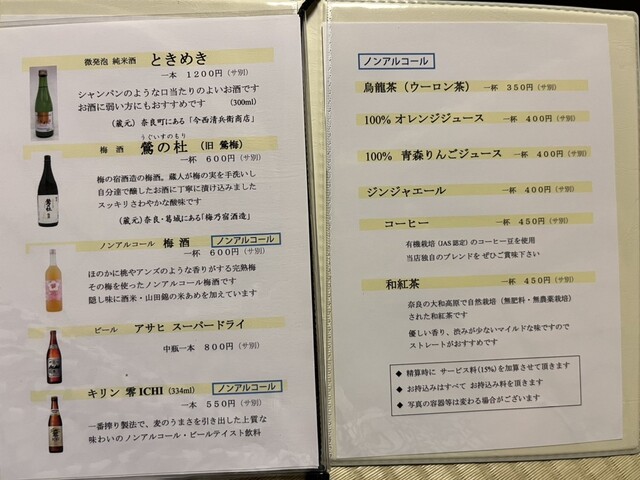 微発泡 純米酒 ときめき
一本 1200円(サ別)
シャンパンのような口当たりのよいお酒です
お酒に弱い方にもおすすめです (300ml)
(蔵元)奈良町にある「今西清兵衛商店」
うぐいすのもり
梅 酒 鶯の杜 (旧 鶯梅)
一杯 600円(サ別)
梅の宿酒造の梅酒。蔵人が梅の実を手洗いし
自分達で醸したお酒に丁寧に漬け込みました
スッキリさわやかな酸味です
(蔵元)奈良・葛城にある「梅乃宿酒造」
ノンアルコール 梅 酒 ノンアルコール
一杯 600円(サ別)
ほのかに桃やアンズのような香りがする完熟梅
その梅を使ったノンアルコール梅酒です
隠し味に酒米・山田錦の米あめを加えています
ビール アサヒ スーパードライ
中瓶一本 800円(サ別)
キリン 零ICHI (334ml) ノンアルコール
一本 550円(サ別)
一番搾り製法で、麦のうまさを引き出した上質な
味わいのノンアルコール・ビールテイスト飲料
ノンアルコール
烏龍茶(ウーロン茶) 一杯 350円(サ別)
100%オレンジジュース 一杯 400円(サ別)
100% 青森りんごジュース 一杯 400円(サ別)
ジンジャエール 一杯 400円(サ別)
コーヒー 一杯 450円(サ別)
有機栽培(JAS認定)のコーヒー豆を使用
当店独自のブレンドを ぜひご賞味下さい
和紅茶 一杯 450円(サ別)
奈良の大和高原で自然栽培(無肥料・無農薬栽培)
された和紅茶です
優しい香り、渋みが少ないマイルドな味ですので
ストレートがおすすめです
◆ 精算時に サービス料(15%)を加算させて頂きます
◆ お持込みはすべて お持込み料を頂きます
◆ 写真の容器等は変わる場合がございます